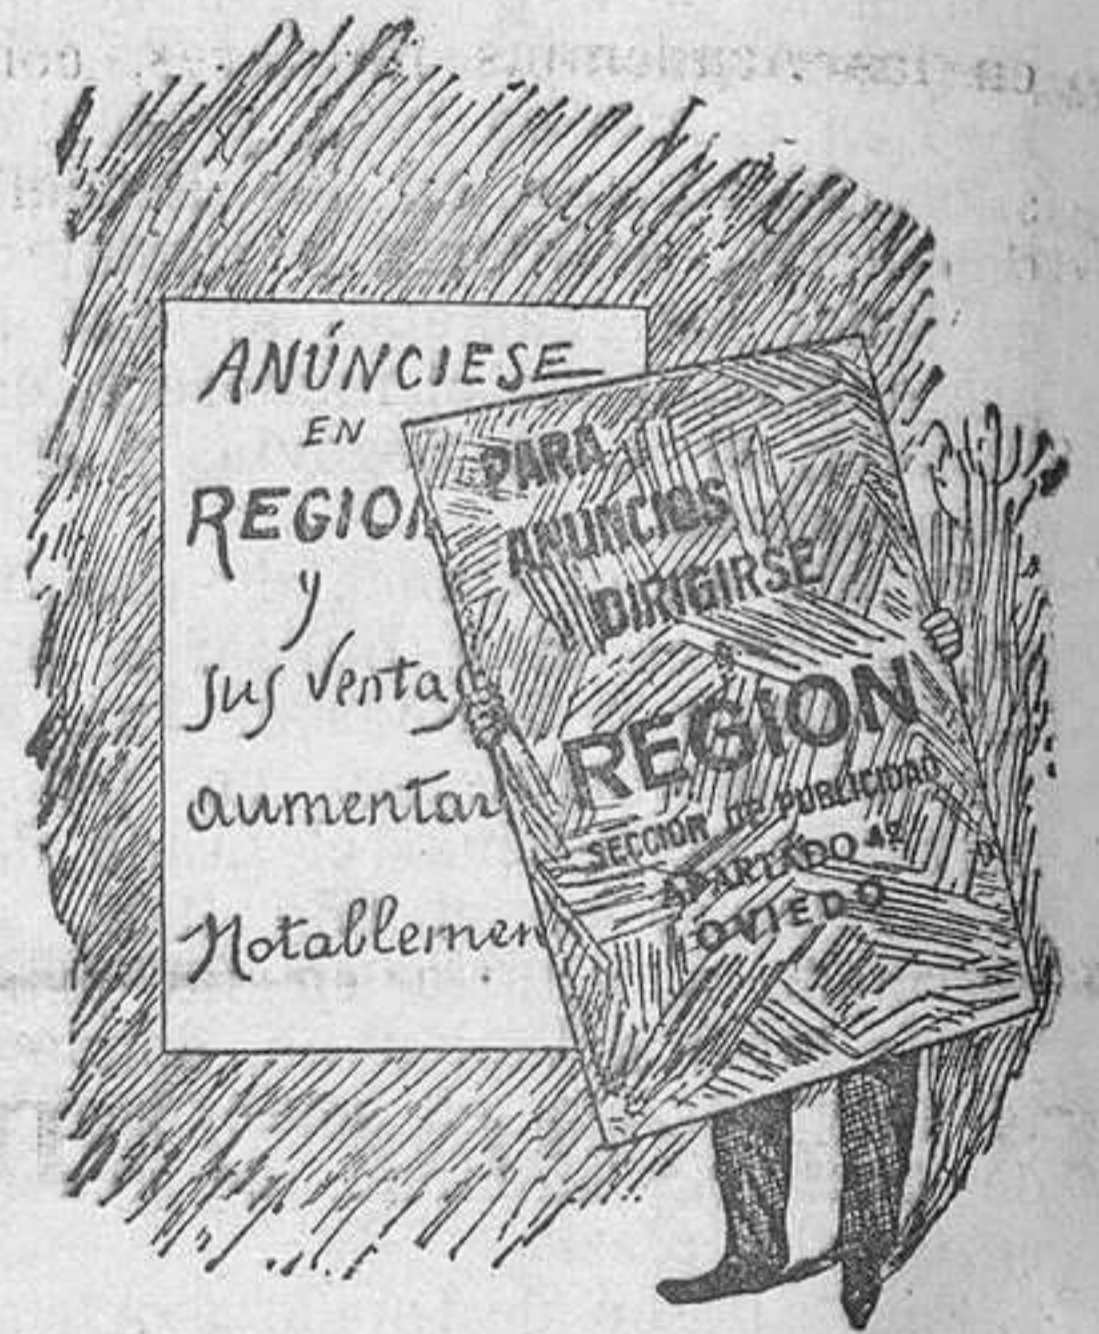 ANÚNCIESE
EN
REGION
y
sus Ventas
aumentar
Notablemen
PARA
ANUNCIOS
DIRIGIRSE
A
REGION
SECCION DE PUBLICIDAD
APARTADO 42
OVIEDO